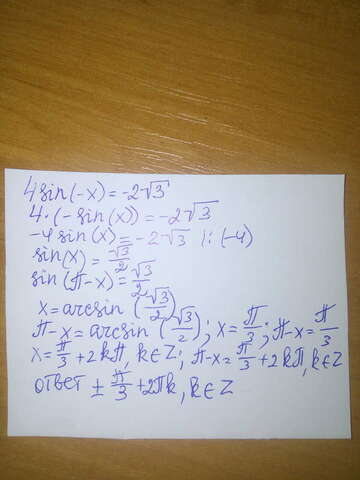 4 sin(-x) = -2√3
4·(-sin(x)) = -2√3
-4 sin(x) = -2√3 |: (-4)
sin(x) = √3/2
sin(π-x) = √3/2
x = arcsin (√3/2)
π-x = arcsin (√3/2); x = π/3; π-x = π/3
x = π/3 + 2kπ, k∈Z; π-x = π/3 + 2kπ, k∈Z
ответ ± π/3 + 2πk, k∈Z